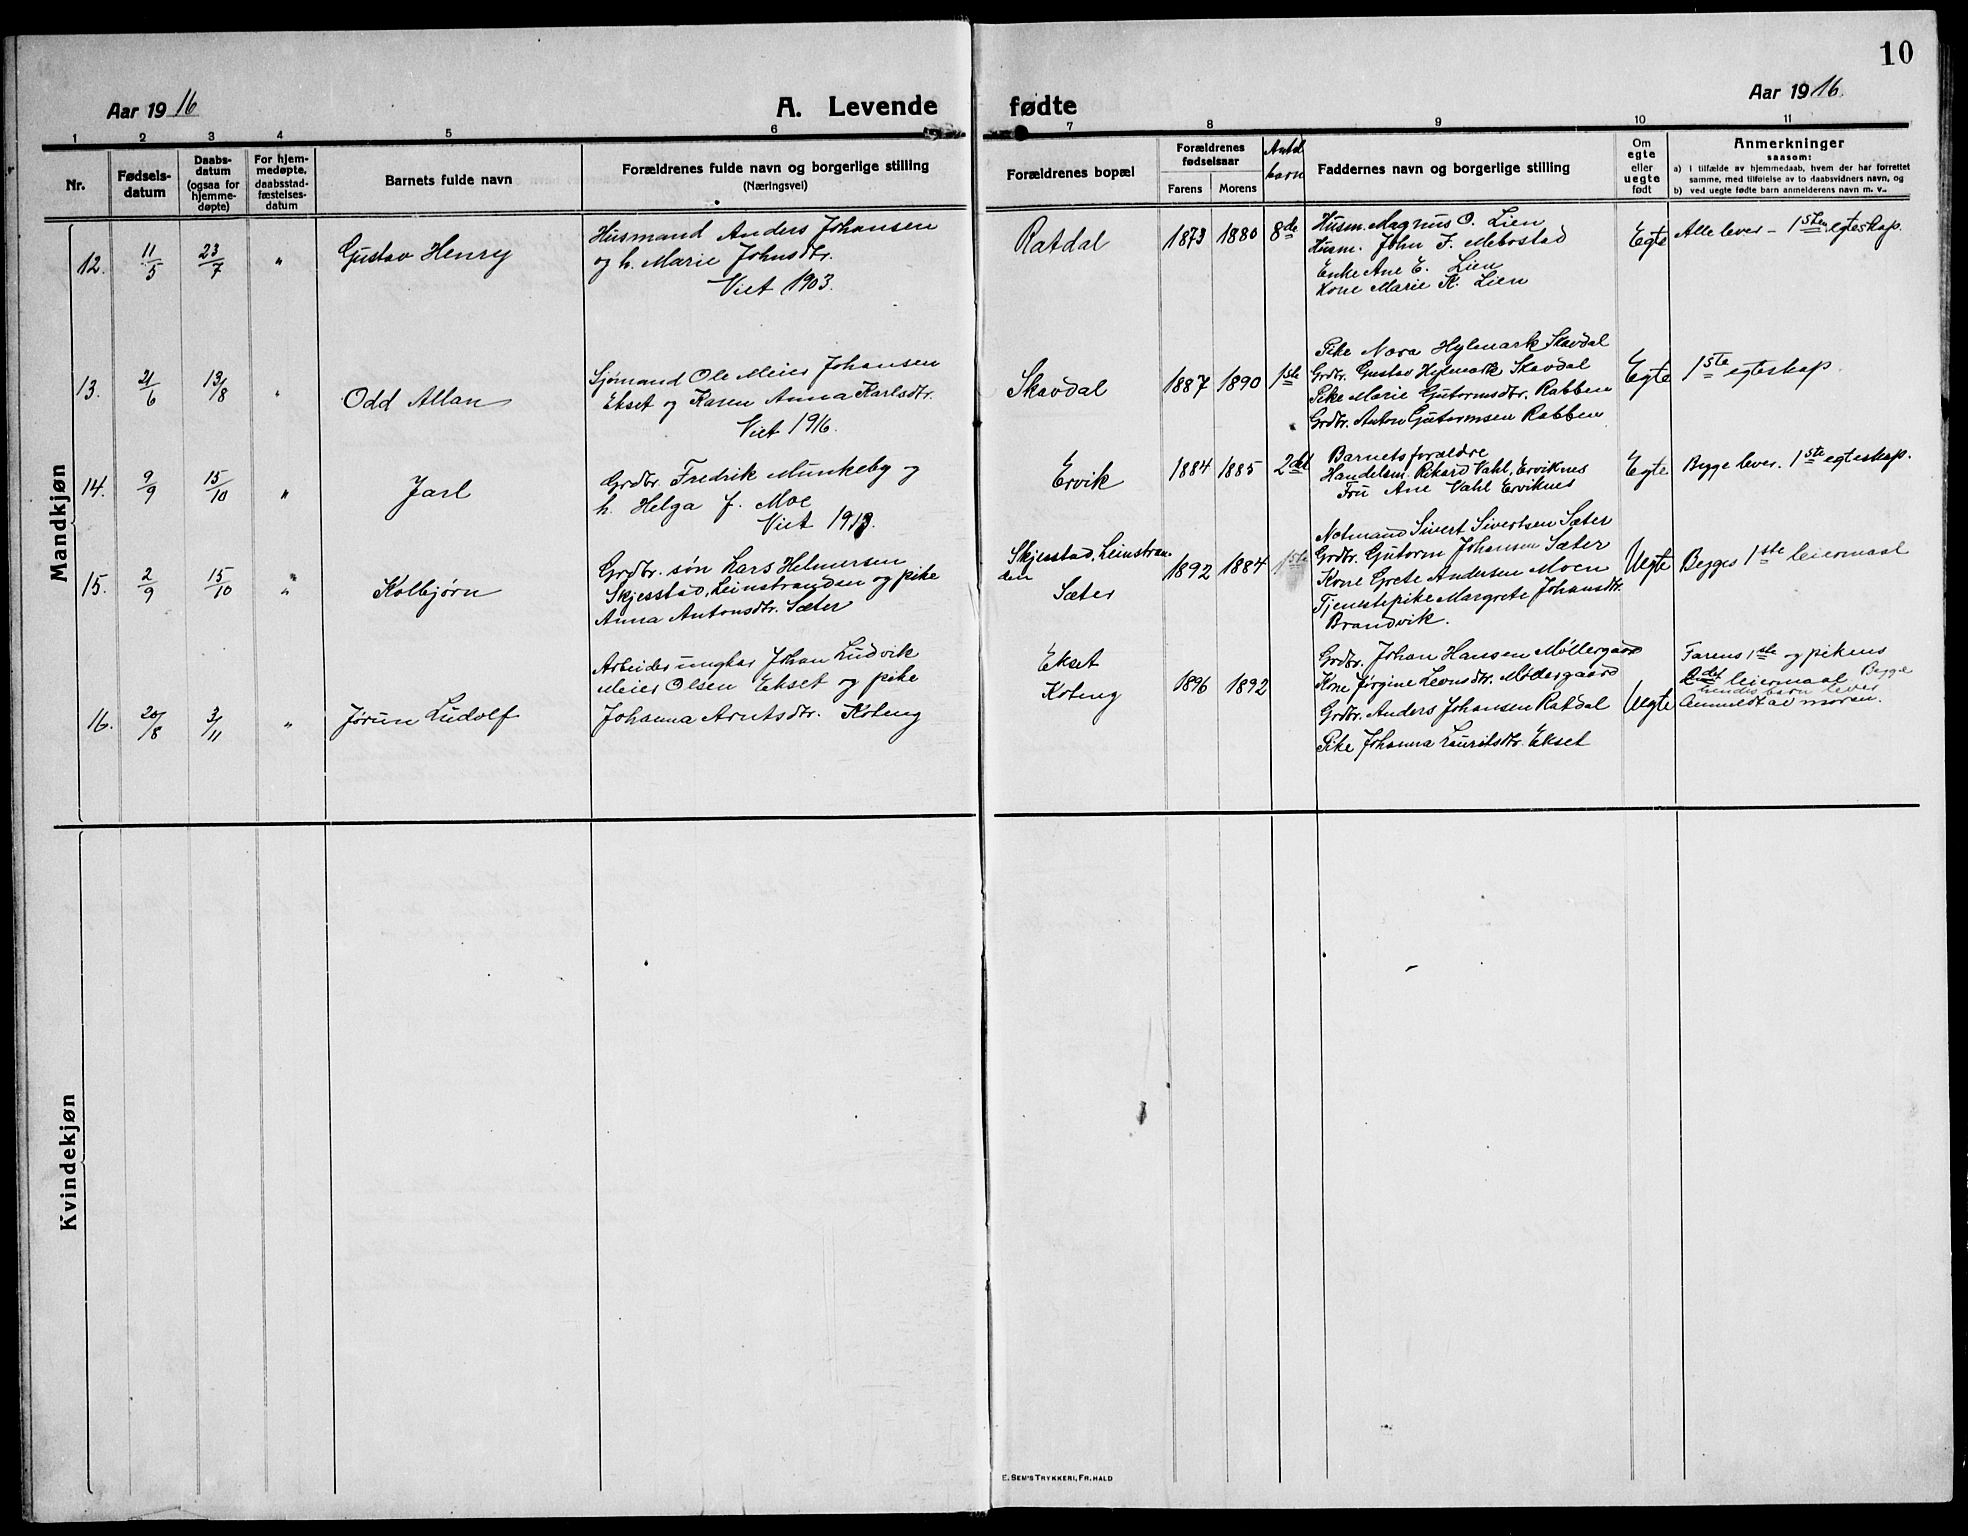 10
Aar 1916
A. Levende fødte
Aar 1916.
1 2 3 4 5 6 7 8 9 10 11
Nr.
Fødsels-
datum
Daabs-
datum
(ogsaa for
hjemme-
døpte)
For hjem-
medøpte,
daabsstad-
fæstelses-
datum
Barnets fulde navn
Forældrenes fulde navn og borgerlige stilling
(Næringsvei)
Forældrenes bopæl
Forældrenes
fødselsaar
Farens Morens
Antal
barn
Faddernes navn og borgerlige stilling
Om
egte
eller
uegte
født
Anmerkninger
saasom:
a) i tilfælde av hjemmedaab, hvem der har forrettet
samme, med tilføielse av to daabsvidners navn, og
b) ved uegte fødte barn anmelderens navn m. v..
Mandkjøn
12. 11/5 23/7 " Gustav Henry
Husmand Anders Johansen
og h. Marie Johnsdtr.
Viet 1903.
Ratdal 1873 1880 8de
Husm. Magnus O. Lien
Husm. John J. Mebostad
Enke Ane E. Lien
Kone Marie K. Lien
Egte Alle lever - 1sten egteskap.
13. 21/6 13/8 " Odd Allan
Sjømand Ole Meier Johansen
Ekset og Karen Anna Karlsdtr.
Viet 1916.
Skavdal 1887 1890 1ste
Pike Nora Hylmark Skavdal
Grdbr. Gustav Hylmark Skavdal
Pike Marie Gutormsdtr. Rabben
Grdbr. Anton Gutormsen Rabben
Egte 1ste egteskap.
14. 9/9 15/10 " Jarl
Grdbr. Fredrik Munkeby og
h. Helga f. Moe
Viet 1913.
Ervik 1884 1885 2det
Barnets forældre
Handelsm. Rikard Vahl, Erviknes
Fru Ane Vahl Erviknes
Egte Begge lever. 1ste egteskap.
15. 2/9 15/10 " Kolbjørn
Grdbr. søn Lars Helmersen
Skjesstad, Leinstranden og pike
Anna Antonsdtr. Sæter
Skjesstad, Leinstran-
den
Sæter
1892 1884 1ste
Notmand Sivert Sivertsen Sæter
Grdbr. Gutorm Johansen Sæter
Kone Grete Andersen Moen
Tjenestepike Margrete Johansdtr.
Brandvik.
Uegte Begges 1ste leiermaal
16. 20/8 3/11 " Jørun Ludolf
Arbeider ungkar Johan Ludvik
Meier Olsen Ekset og pike
Johanna Arntsdtr. Koteng
Ekset
Koteng
1896 1892
Grdbr. Johan Hansen Møllergaard
Kone Jørgine Leonsdtr. Møllergaard
Grdbr. Anders Johansen Ratdal
Pike Johanna Lauritsdtr. Ekset
Uegte
Farens 1ste og pikens
2det leiermaal Begge
hendes barn lever
Anmeldt av moren.
Kvindekjøn
E. SEM'S TRYKKERI, FR.HALD